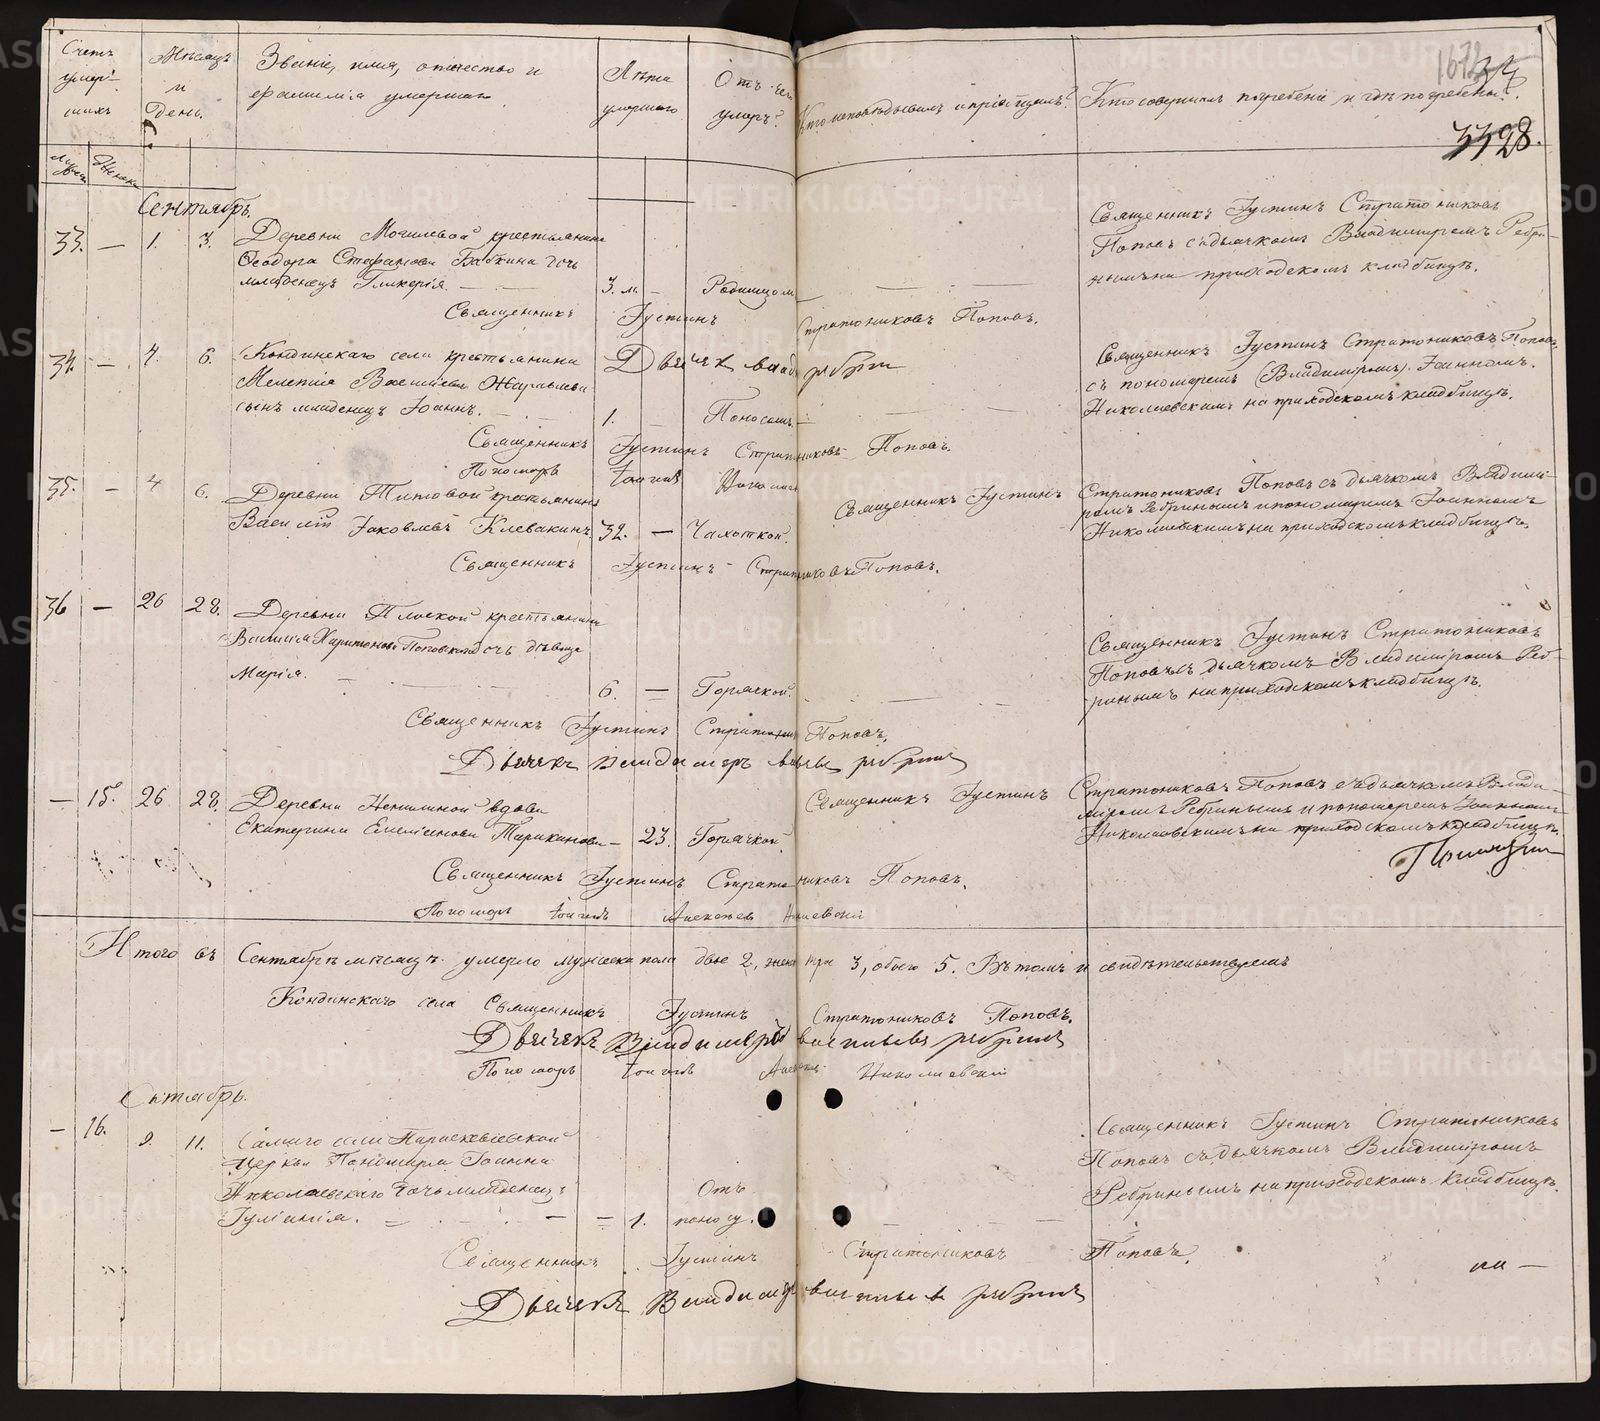 Счетъ умершихъ
Мѣсяцъ и День.
Званіе, имя, отчество и
фамилія умершаго
Лѣта умершаго
Отъ чего умеръ?
Кто исповѣдывалъ и пріобщалъ?
Кто совершалъ погребеніе и гдѣ погребены?
3328.
Сентябрь.
33. — 1. 3. Деревни Могилевой крестьянина
Ѳеодора Стефанова Бабкина дочь
младенецъ Гликерія. 3. м. — Родимцомъ
Священникъ Іустинъ Стратониковъ
Поповъ съ дьячкомъ Владимиромъ Ребри-
нымъ на приходскомъ кладбищѣ.
Священникъ Іустинъ Стратониковъ Поповъ.
34. — 4. 6. Кондинскаго села крестьянина
Мелетія Васильева
сынъ младенецъ Іоаннъ. 1. Поносомъ.
Священникъ Іустинъ Стратониковъ Поповъ
съ пономаремъ (Владимиромъ) Іоанномъ
Николаевскимъ на приходскомъ кладбищѣ.
Священникъ Іустинъ Стратониковъ Поповъ.
Пономарь Іоаннъ
35. — 4 6. Деревни Титовой крестьянинъ
Василій Іаковлевъ Клевакинъ. 32. — Чахоткой.
Священникъ Іустинъ Стратониковъ Поповъ съ дьячкомъ Владими-
ромъ Ребринымъ и пономаремъ Іоанномъ
Николаевскимъ на приходскомъ кладбищѣ.
Священникъ Іустинъ Стратониковъ Поповъ.
36 — 26 28. Деревни Плоской крестьянина
Василія Харитонова Попова дочь дѣвица
Марія. 6. — Горячкой.
Священникъ Іустинъ Стратониковъ
Поповъ съ дьячкомъ Владимиромъ Реб-
ринымъ на приходскомъ кладбищѣ.
Священникъ Іустинъ Стратониковъ Поповъ.
Дьячекъ Владимеръ Васильевъ Ребринъ
— 15. 26 28. Деревни вдова
Екатерина Емеліанова Тараканова — 23. Горячкой.
Священникъ Іустинъ Стратониковъ Поповъ съ дьячкомъ Влади-
міромъ Ребринымъ и пономаремъ Іоанномъ
Николаевскимъ на приходскомъ кладбищѣ.
Священникъ Іустинъ Стратониковъ Поповъ.
Пономарь Іоаннъ Алексѣевъ Николаевскій
Итого въ Сентябрѣ мѣсяцѣ умерло мужеска пола двое 2, женска три 3, обоего 5. Въ томъ и свидѣтельствуемъ
Кондинскаго села Священникъ Іустинъ Стратониковъ Поповъ.
Дьячекъ Владимеръ Васильевъ Ребринъ
Пономарь Іоаннъ Николаевскій
Октябрь.
— 16. 9. 11. Самаго села Параскевіевской
церкви Пономаря Іоанна
Николаевскаго дочь младенецъ
Іуліанія. — 1. Отъ поносу.
Священникъ Іустинъ Стратониковъ
Поповъ съ дьячкомъ Владимиромъ
Ребринымъ на приходскомъ кладбищѣ.
Священникъ Іустинъ Стратониковъ Поповъ.
Дьячекъ Владимеръ Васильевъ Ребринъ
METRIKI.GASO-URAL.RU